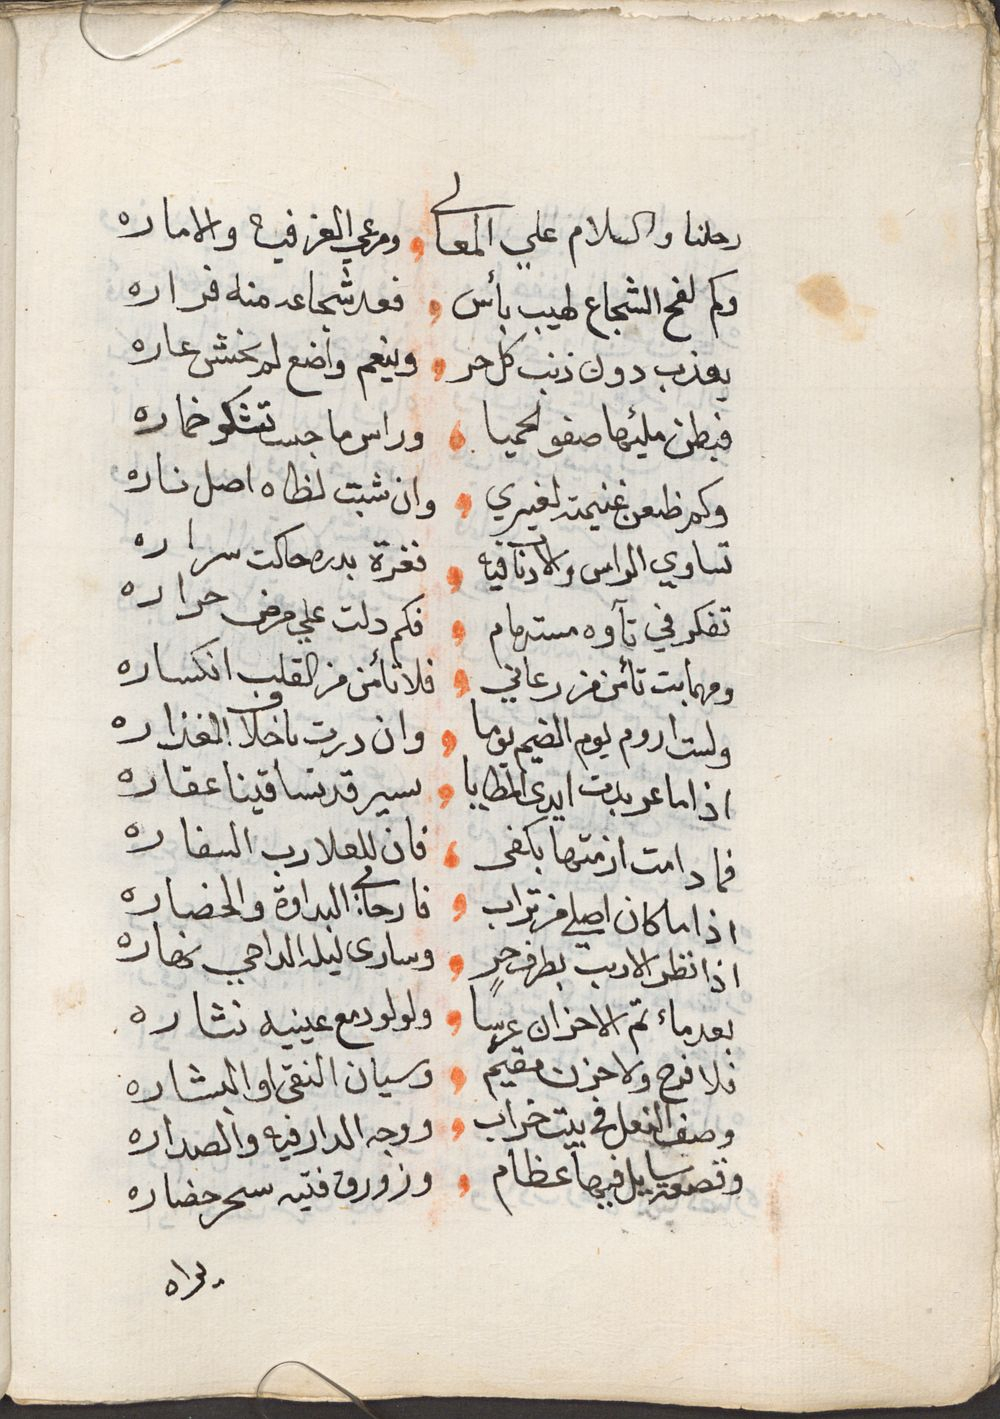 رحلنا والسلام علي المعالي ومرعي العز فيه والاماره
وكم لفح الشجاع لهيب بأس فعد شجاعه منه فراره
يعذب دون ذنب كل حر وينعم واضع لم يخش عاره
فبطن مليئها صفو الحميا وراس ما جست تشكو خماره
وكم ظعن غنيمته لغيري وان شبت لظاه اصل ناره
تساوي الراس والاذناب فيه فغرة بدره حاكت سراره
تفكر في تأوه مستهام فكم دلت علي مرض حراره
ومهما بت تأمن من رعاني فلا تأمن من القلب انكساره
ولست اروم يوم الضيم يوما وان درت باخلاف الغذاره
اذا ما عربدت ايدي المطايا بسير قد تساقينا عقاره
فما دامت ازمتها بكفي فان للعلا رب السفاره
اذا ما كان اصلي من تراب فارحابي البداوة والحضاره
اذا نظر الاريب بطرف حر وساري ليله الداجي نهاره
يعد مأتم الاحزان عرسا ولولو دمع عينيه نثاره
فلا فرح ولا حزن مقيم وسيان النقي او البشاره
وصف النعل في بيت خراب ووجه الدار فيه والصداره
وقصعة سايل فيها عظام وزورق فتيه سحر حضاره
يراه